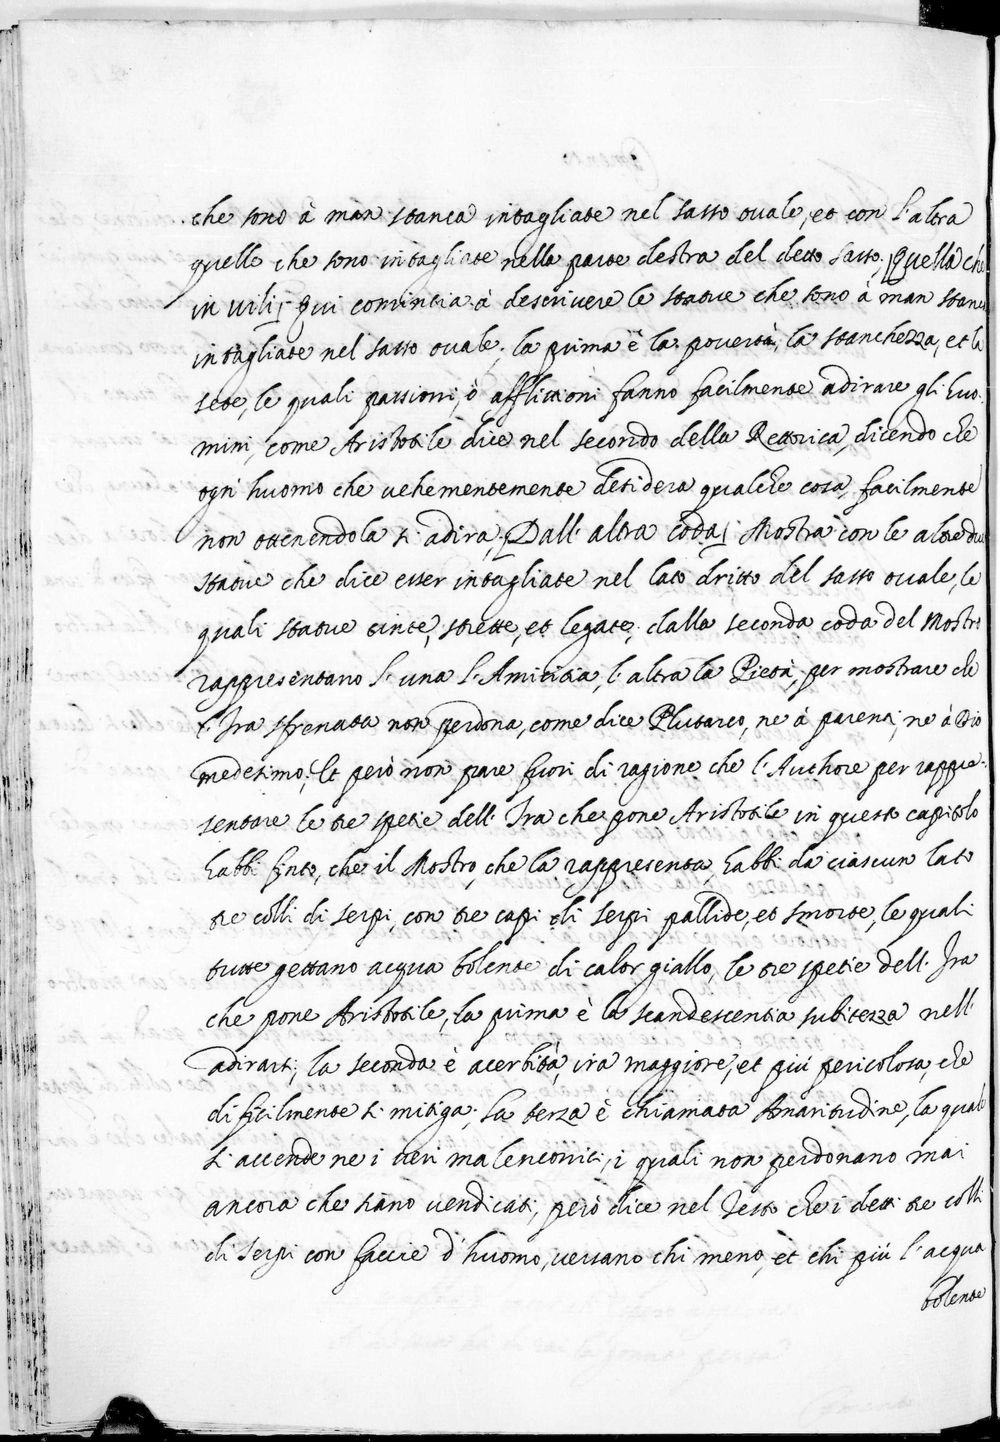 che sono à man stanca intagliate nel sasso ovale, et con l'altra
quelle che sono intagliate nella parte destra del detto sasso. Quella ch'è
in vili, Qui comincia à descrivere le statue che sono à man stanca
intagliate nel sasso ovale, la prima è la povertà, la stanchezza, et la
sete, le quali passioni, ò afflittioni fanno facilmente adirare gli huo-
mini, come Aristotile dice nel secondo della Rettorica, dicendo che
ogni huomo che vehementemente desidera qualche cosa, facilmente
non ottenendola si adira, Dall' altra coda, Mostra con le altre due
statue che dice esser intagliate nel lato dritto del sasso ovale, le
quali statue cinte, strette, et legate, dalla seconda coda del Mostro
rappresentano l'una l'Amicitia, l'altra la Pietà, per mostrare che
l'Ira sfrenata non perdona, come dice Plutarco, ne à parenti, ne à Dio
medesimo; Et però non pare fuori di ragione che l'Authore per rappre-
sentare le tre spetie dell' Ira che pone Aristotile in questo capitolo
habbi finto, che il Mostro, che la rappresenta, habbi da ciascun lato
tre colli di serpi, con tre capi di serpi pallide, et smorte, le quali
tutte gettano acqua bolente di calor giallo, le tre spetie dell' Ira
che pone Aristotile, la prima è la scandescentia subitezza nell'
adirarsi, la seconda è acerbità, ira maggiore, et più pericolosa, che
dificilmente si mitiga, La terza è chiamata Amaritudine, la quale
si accende ne i veri malenconici, i quali non perdonano mai
ancora che siano vendicati, però dice nel Testo che i detti tre colli
di serpi con faccie d'huomo, versano chi meno, et chi più l'acqua
bolente